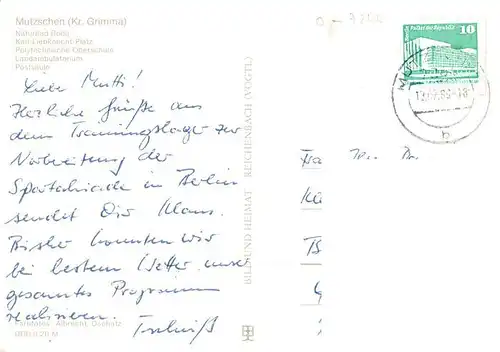 Mutzschen (Kr. Grimma)
Naturbad Böhla
Karl-Liebknecht-Platz
Polytechnische Oberschule
Landambulatorium
Postsäule
Liebe Mutti!
Herzliche Grüße aus
dem Trainingslager zur
Vorbereitung der
Spartakiade in Berlin
sendet Dir Klaus.
Bisher konnten wir
bei bestem Wetter unser
gesamtes Programm
realisieren.
Tschüß
Farbfotos: Albrecht, Oschatz
BILD UND HEIMAT REICHENBACH (VOGTL)
Palast der Republik
10